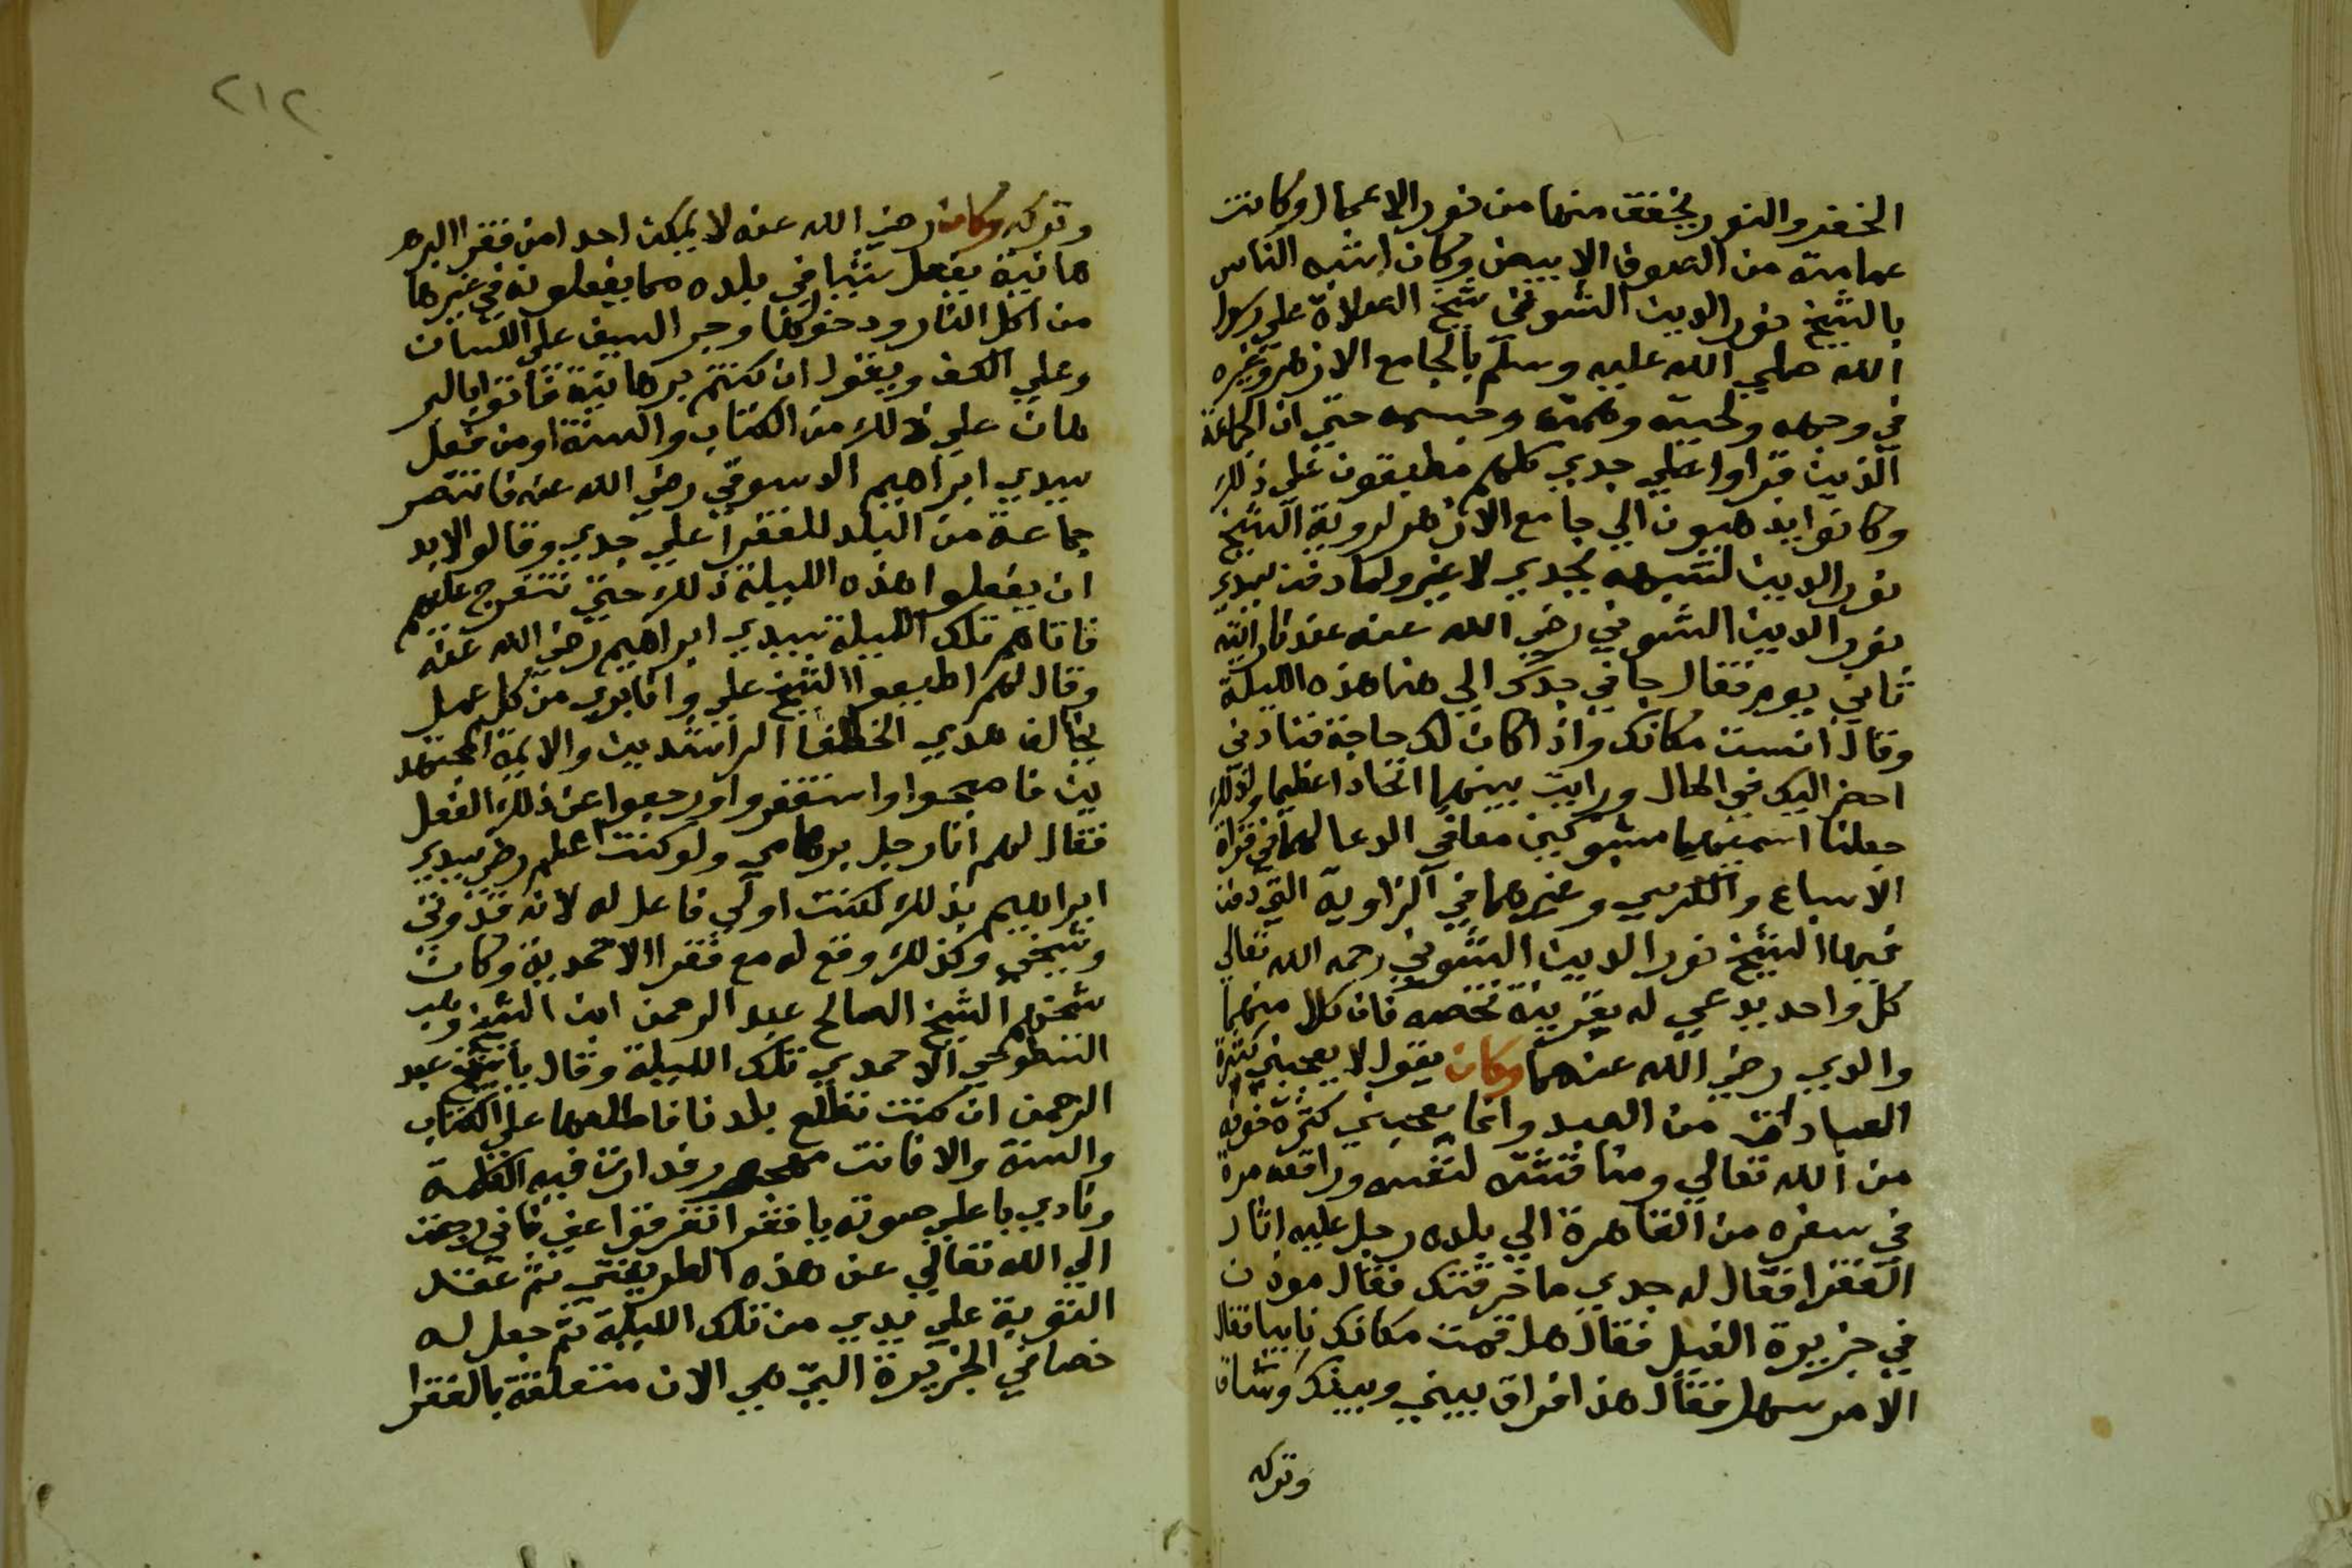 الخضر والنور يخفق منها من نور الاعمال وكانت
عمامته من الصوف الابيض وكان اشبه الناس
بالشيخ نور الدين الشوني شيخ الصلاة علي رسول
الله صلي الله عليه وسلم بالجامع الازهر وغيره
في وجهه ولحيته وعمته وجسمه حتي ان الجماعة
الذين قراوا علي جدي كلهم مطبقون علي ذلك
وكانوا يذهبون الي جامع الازهر لروية الشيخ
نور الدين لشبهه بجدي لا غير ولما دفن سيدي
نور الدين الشوني رضي الله عنه عندنا رايته
ثاني يوم فقال جاني جدك الي هنا هذه الليلة
وقال انست مكانك واذا كان لك حاجة فنادني
احضر اليك في الحال ورايت بينهما اتحادا عظيما ولذلك
جعلنا اسميهما مشتركين معا في الدعا لهما في قراة
الاسباع والكرسي وغيرهما في الزاوية التي دفن
فيها الشيخ نور الدين الشوني رحمه الله تعالي
كل واحد يدعي له بقرينة تخصه فان كلا منهما
والدي رضي الله عنهما وكان يقول لا يعجبني كثرة
العبادات من العبد وانما يعجبني كثرة خوفه
من الله تعالي ومناقشته لنفسه ورافقه مرة
في سفره من القاهرة الي بلده رجل عليه اثار
الفقرا فقال له جدي ما حرفتك فقال موذن
في جزيرة الفيل فقال هل قمت مكانك نايبا فقال
الامر سهل فقال هذا فراق بيني وبينك وشاق
وتركه
٢١٢
وتركه وكان رضي الله عنه لا يمكن احدا من فقرا البر
هانية يفعل شيا في بلده مما يفعلونه في غيرها
من اكل النار ودخولها وجر السيف علي اللسان
وعلي الكف ويقول ان كنتم برهانية فاتوا بالبر
هان علي ذلك من الكتاب والسنة او من فعل
سيدي ابراهيم الدسوقي رضي الله عنه فانتصر
جماعة من البلد للفقرا علي جدي وقالوا لابد
ان يفعلوا هذه الليلة ذلك حتي نتفرج عليهم
فاتاهم تلك الليلة سيدي ابراهيم رضي الله عنه
وقال لهم اطيعوا الشيخ علي وانا بري من كل عمل
يخالف هدي الخلفا الراشدين والايمة المجتهد
ين فاصبحوا واستغفروا ورجعوا عن ذلك الفعل
فقال لهم انا رجل برهامي ولو كنت اعلم رضي سيدي
ابراهيم بذلك لكنت اولي فاعل له لانه قدوتي
وشيخي وكذلك وقع له مع فقرا الاحمدية وكان
شيخهم الشيخ الصالح عبد الرحمن ابن الشيخ وهيب
السطوحي الاحمدي تلك الليلة وقال يا شيخ عبد
الرحمن ان كنت تطلع بلدنا فاطلعها علي الكتاب
والسنة والا فانت مهجور فدارت فيه الكلمة
ونادي باعلي صوته يا فقرا تفرقوا عني فاني رجعت
الي الله تعالي عن هذه الطريقتي ثم عقد
التوبة علي يدي من تلك الليلة ثم جعل له
خصا في الجزيرة التي هي الان متعلقة بالفقرا